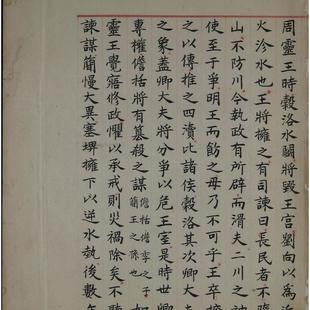 周靈王時穀洛水鬭將毀王宮劉向以為近
火沴水也王將擁之有司諫曰長民者不隳
山不防川今執政有所辟而滑夫二川之神
使至于爭明王而飭之毋乃不可乎王卒擁
之以傳推之四瀆比諸侯穀洛其次卿大夫
之象蓋卿大夫將分爭以危王室是時世卿
專權儋括將有篡殺之謀
儋括儋季之子
簡王之孫也
如
靈王覺寤修政懼以承戒則災禍除矣不聽
諫謀簡慢大異塞埤擁下以逆水埶後數年